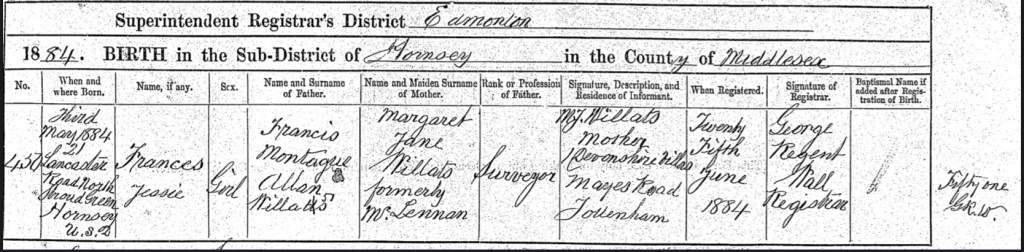 Superintendent Registrar's District Edmonton
1884. BIRTH in the Sub-District of Hornsey in the County of Middlesex
No. When and where Born. Name, if any. Sex. Name and Surname of Father. Name and Maiden Surname of Mother. Rank or Profession of Father. Signature, Description, and Residence of Informant. When Registered. Signature of Registrar. Baptismal Name if added after Registration of Birth.
450
Third
May 1884
21
Lancaster
Road North
Stroud Green
Hornsey
U.S.D
Frances
Jessie
Girl
Francis
Montague
Allan
Willats
Margaret
Jane
Willats
formerly
McLennan
Surveyor
M J Willats
Mother
1 Devonshire Villas
Mayes Road
Tottenham
Twenty
Fifth
June
1884
George
Regent
Wall
Registrar
Fifty one
G.R.W.